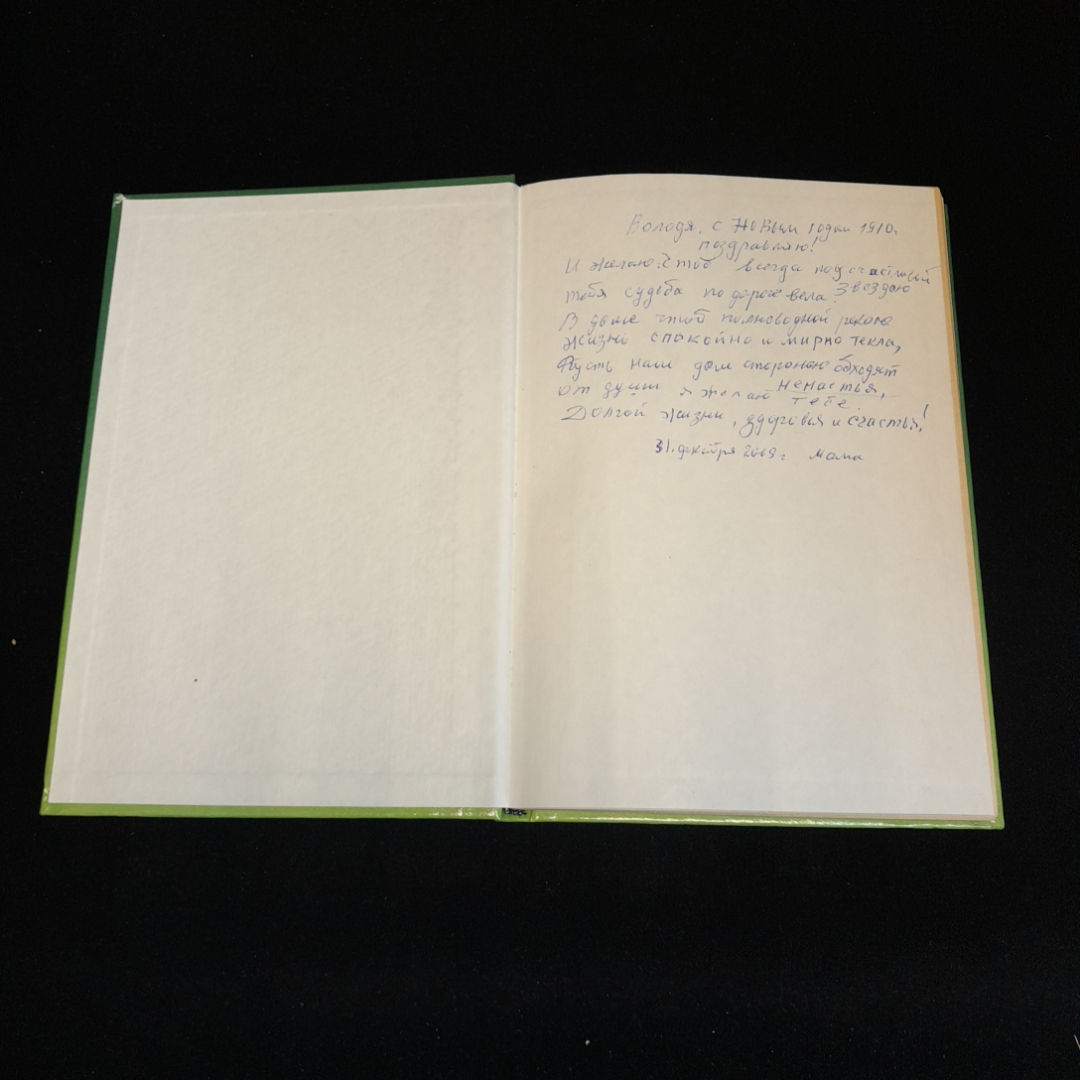 Володя, с Новым годом 1910.
поздравляю!
И желаю: Чтоб всегда под счастливой
тебя судьба по дороге вела. Звездою
В доме чтоб полноводной рекою
жизнь спокойно и мирно текла,
Пусть наш дом стороною обходят
от души я желаю ненастья,
тебе.
Долгой жизни, здоровья и счастья!
31. декабря 2009 г Мама